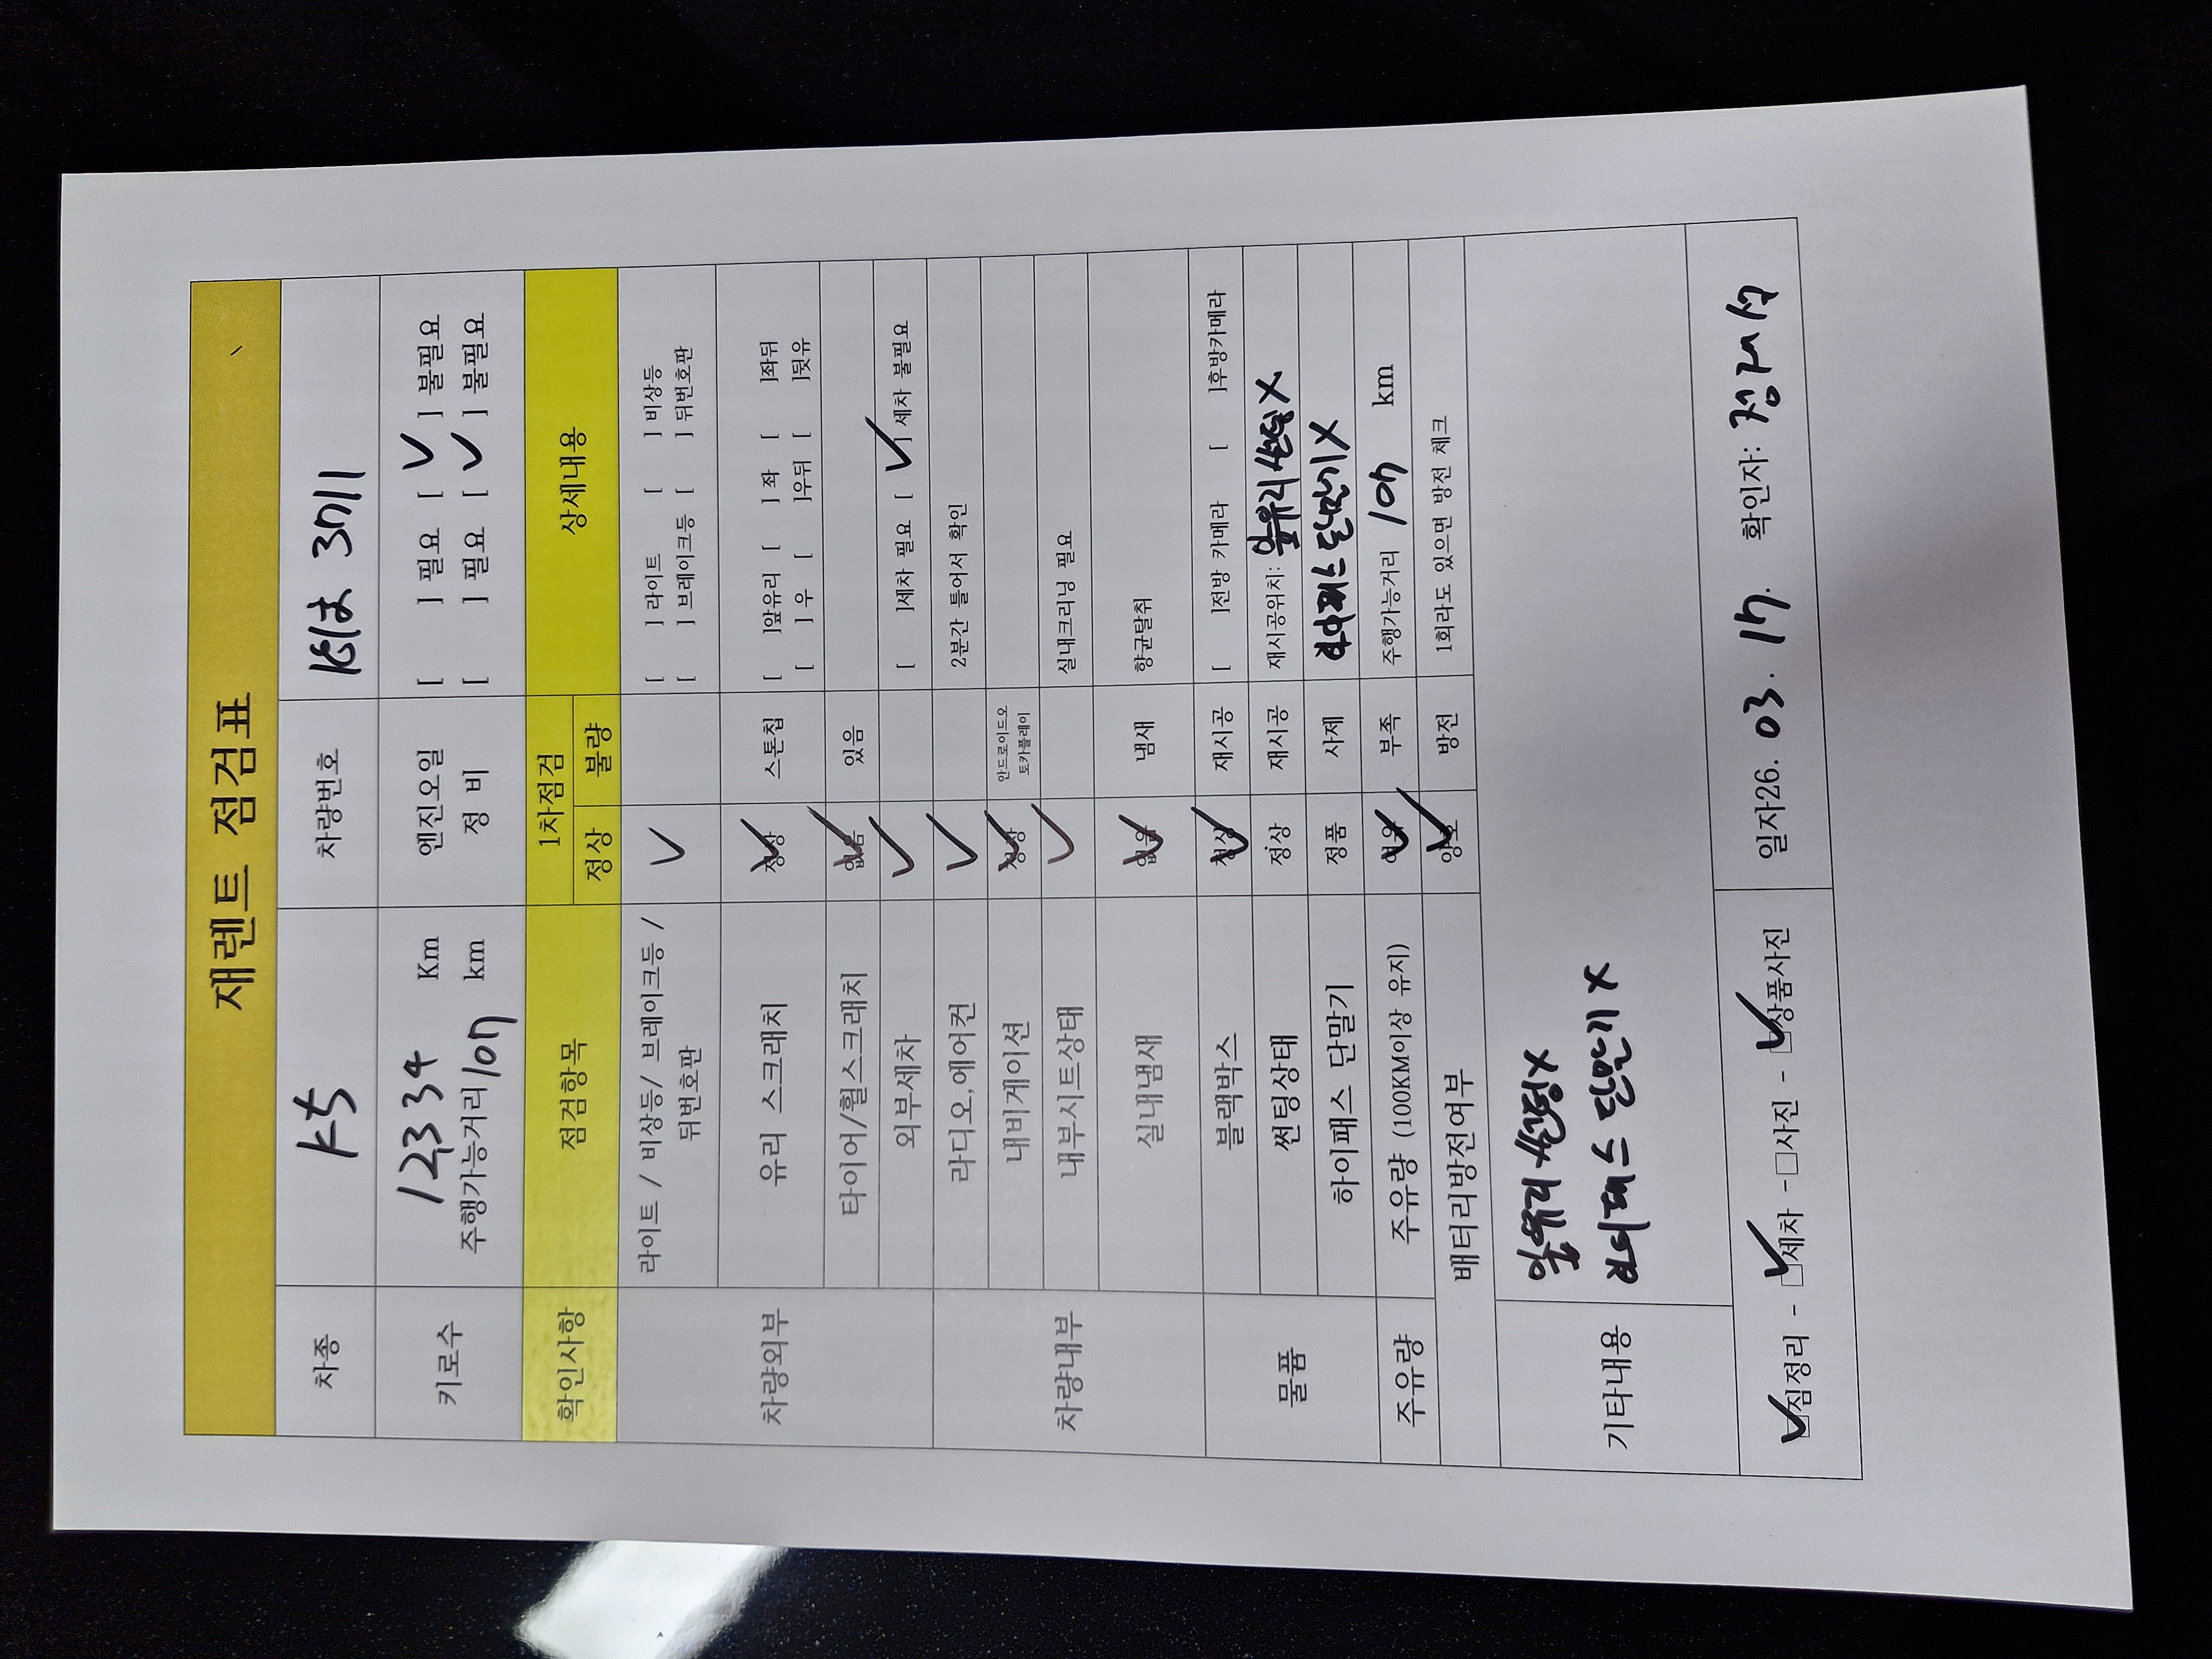 재렌트 점검표
차종 K5 차량번호 3711
키로수 12334 Km 엔진오일 [ ] 필요 [✓] 불필요
주행가능거리 107 km 정 비 [ ] 필요 [✓] 불필요
확인사항 점검항목 1차점검 상세내용
정상 불량
차량외부 라이트 / 비상등/ 브레이크등 / ✓ [ ] 라이트 [ ] 비상등
뒤번호판 [ ] 브레이크등 [ ] 뒤번호판
유리 스크래치 정상 ✓ 스톤칩 [ ]앞유리 [ ] 좌 [ ]좌뒤
[ ] 우 [ ]우뒤 [ ]뒷유
타이어/휠스크래치 없음 ✓ 있음
외부세차 ✓ [ ]세차 필요 [✓] 세차 불필요
차량내부 라디오,에어컨 ✓ 2분간 틀어서 확인
내비게이션 정상 ✓ 안드로이드오
토카플레이
내부시트상태 ✓ 실내크리닝 필요
실내냄새 없음 ✓ 냄새 향균탈취
물품 블랙박스 정상 ✓ 재시공 [ ]전방 카메라 [ ]후방카메라
썬팅상태 정상 재시공 재시공위치: 앞유리 썬팅X
하이패스 단말기 정품 사제 하이패스 단말기 X
주유량 주유량 (100KM이상 유지) 여유 ✓ 부족 주행가능거리 107 km
배터리방전여부 양호 ✓ 방전 1회라도 있으면 방전 체크
기타내용 앞유리 썬팅X
하이패스 단말기 X
☑짐정리 - ☑세차 - □사진 - ☑상품사진 일자26. 03. 17. 확인자: